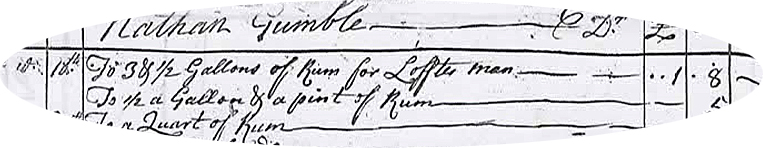 Nathan Gumble Dr £
18th To 3 & 1/2 Gallons of Rum for Loftes man 1 8
To 1/2 a Gallon & a pint of Rum 5
To a Quart of Rum